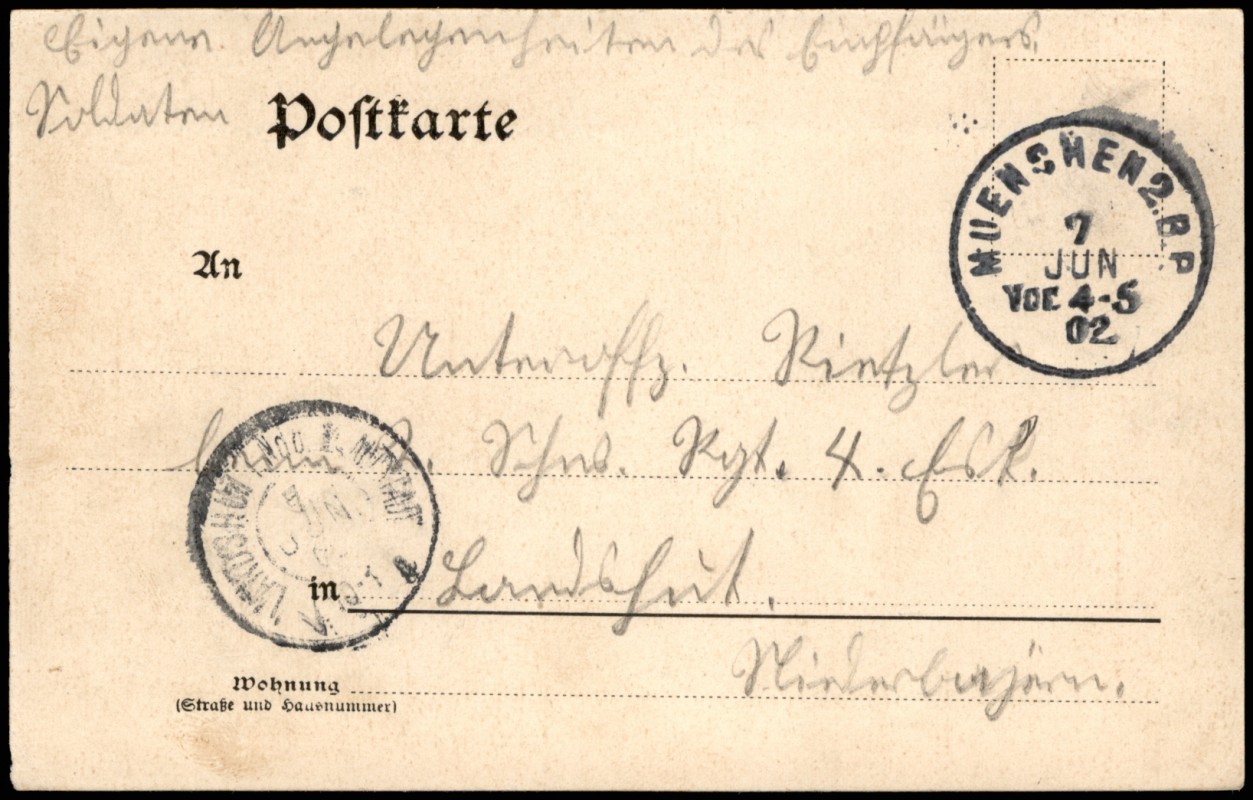 Eigene Angelegenheiten des Empfängers.
Soldaten
Postkarte
MUENCHEN 2. B P
7
JUN
VOR 4-5
02
An
Unteroffz. Rietzler
beim 2. Schw. Rgt. 4. Esk.
LANDSHUT
JUN
in Landshut.
Niederbayern.
Wohnung
(Straße und Hausnummer)